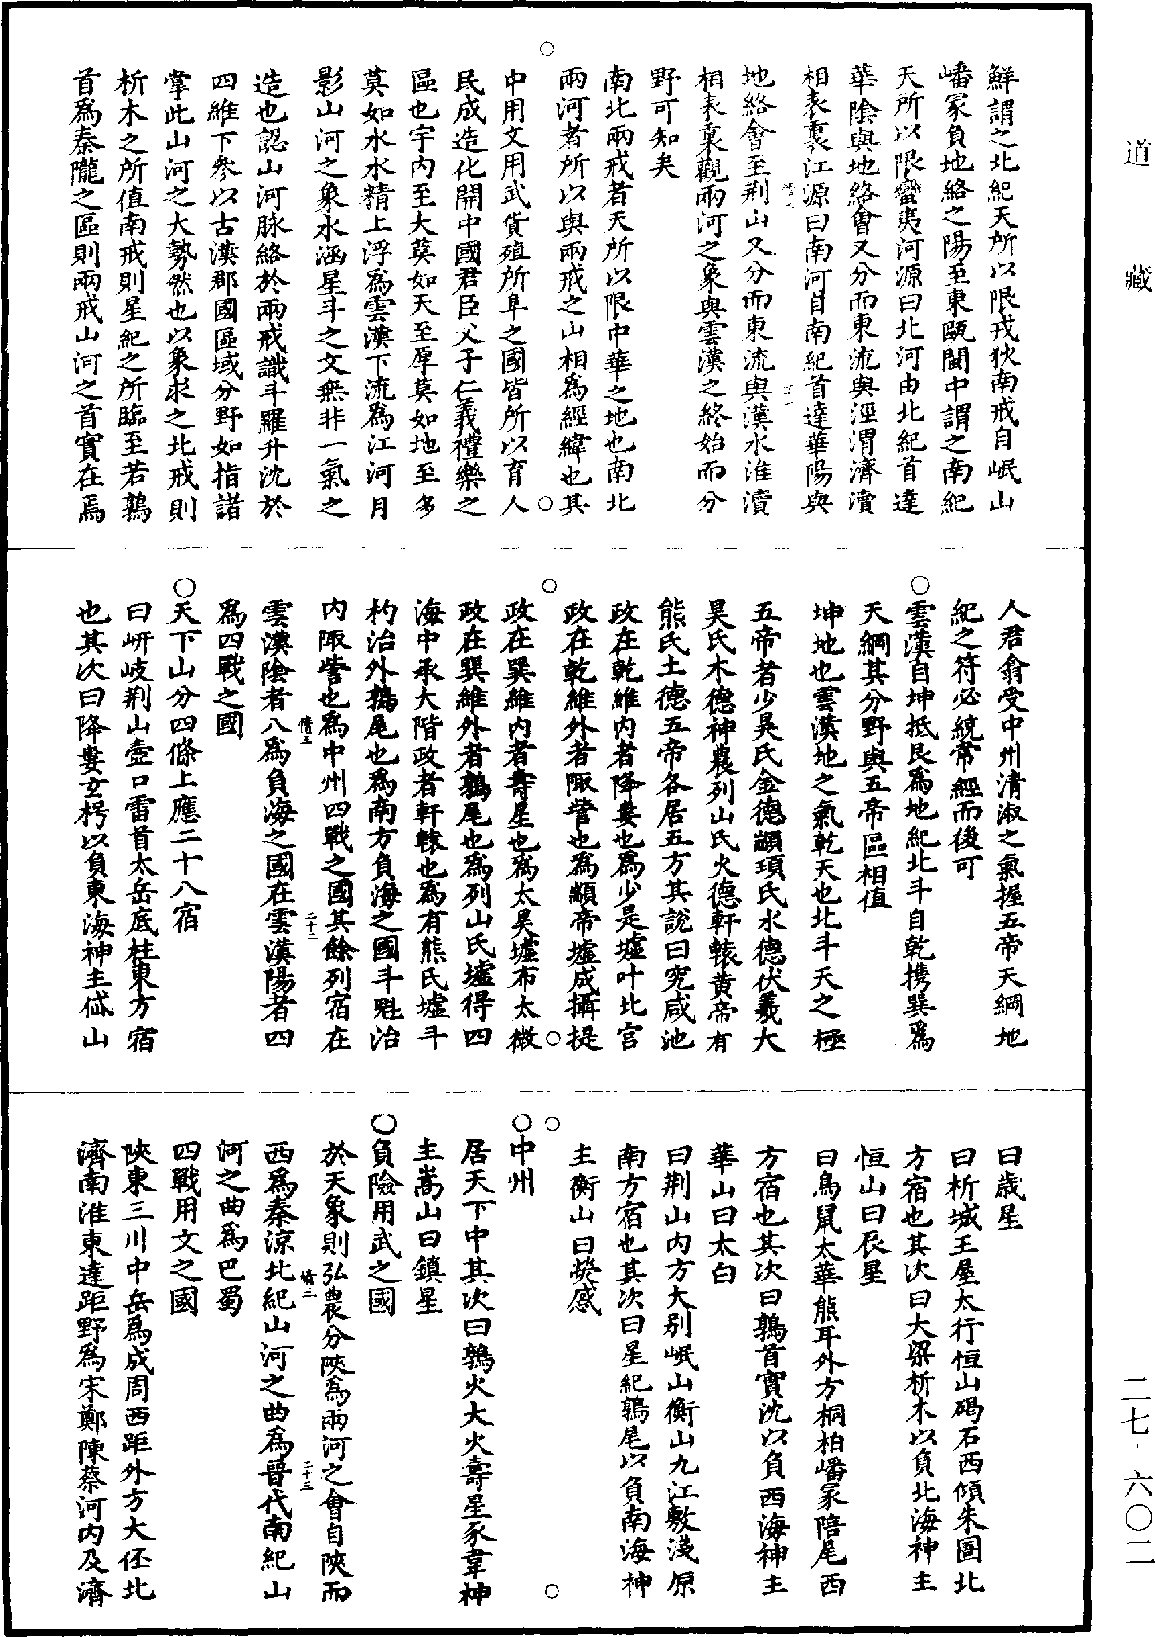 道藏
鮮謂之北紀天所以限戎狄南戒自岷山
嶓冢負地絡之陽至東甌閩中謂之南紀
天所以限蠻夷河源曰北河由北紀首達
華陰與地絡會又分而東流與涇渭濟瀆
相表裏江源曰南河自南紀首達華陽與
地絡會至荆山又分而東流與漢水淮瀆
相表裏觀兩河之象與雲漢之終始而分
野可知矣
南北兩戒者天所以限中華之地也南北
兩河者所以與兩戒之山相爲經緯也其
中用文用武貨殖所阜之國皆所以育人
民成造化開中國君臣父子仁義禮樂之
區也宇內至大莫如天至厚莫如地至多
莫如水水精上浮爲雲漢下流爲江河月
影山河之象水涵星斗之文無非一氣之
造也認山河脉絡於兩戒識斗羅升沈於
四維下參以古漢郡國區域分野如指諸
掌此山河之大勢然也以象求之北戒則
析木之所值南戒則星紀之所臨至若鶉
首爲秦隴之區則兩戒山河之首實在焉
人君翕受中州清淑之氣握五帝天綱地
紀之符必統常經而後可
○雲漢自坤抵艮爲地紀北斗自乾擕巽爲
天綱其分野與五帝區相值
坤地也雲漢地之氣乾天也北斗天之極
五帝者少昊氏金德顓頊氏水德伏羲大
昊氏木德神農列山氏火德軒轅黃帝有
熊氏土德五帝各居五方其說曰究咸池
政在乾維內者降婁也爲少昊墟叶北宮
政在乾維外者陬訾也爲顓帝墟成攝提
政在巽維內者壽星也爲太昊墟布太微
政在巽維外者鶉尾也爲列山氏墟得四
海中承大階政者軒轅也爲有熊氏墟斗
杓治外鶉尾也爲南方負海之國斗魁治
內陬訾也爲中州四戰之國其餘列宿在
雲漢陰者八爲負海之國在雲漢陽者四
爲四戰之國
○天下山分四條上應二十八宿
曰岍岐荆山壺口雷首太岳底柱東方宿
也其次曰降婁玄枵以負東海神主岱山
曰歲星
曰析城王屋太行恒山碣石西傾朱圉北
方宿也其次曰大梁析木以負北海神主
恒山曰辰星
曰鳥鼠太華熊耳外方桐柏嶓冢陪尾西
方宿也其次曰鶉首實沈以負西海神主
華山曰太白
曰荆山內方大別岷山衡山九江敷淺原
南方宿也其次曰星紀鶉尾以負南海神
主衡山曰熒惑
○中州
居天下中其次曰鶉火大火壽星豕韋神
主嵩山曰鎮星
○負險用武之國
於天象則弘農分陝爲兩河之會自陝而
西爲秦涼北紀山河之曲爲晉代南紀山
河之曲爲巴蜀
四戰用文之國
陝東三川中岳爲成周西距外方大伾北
濟南淮東達距野爲宋鄭陳蔡河內及濟
二七·六〇二